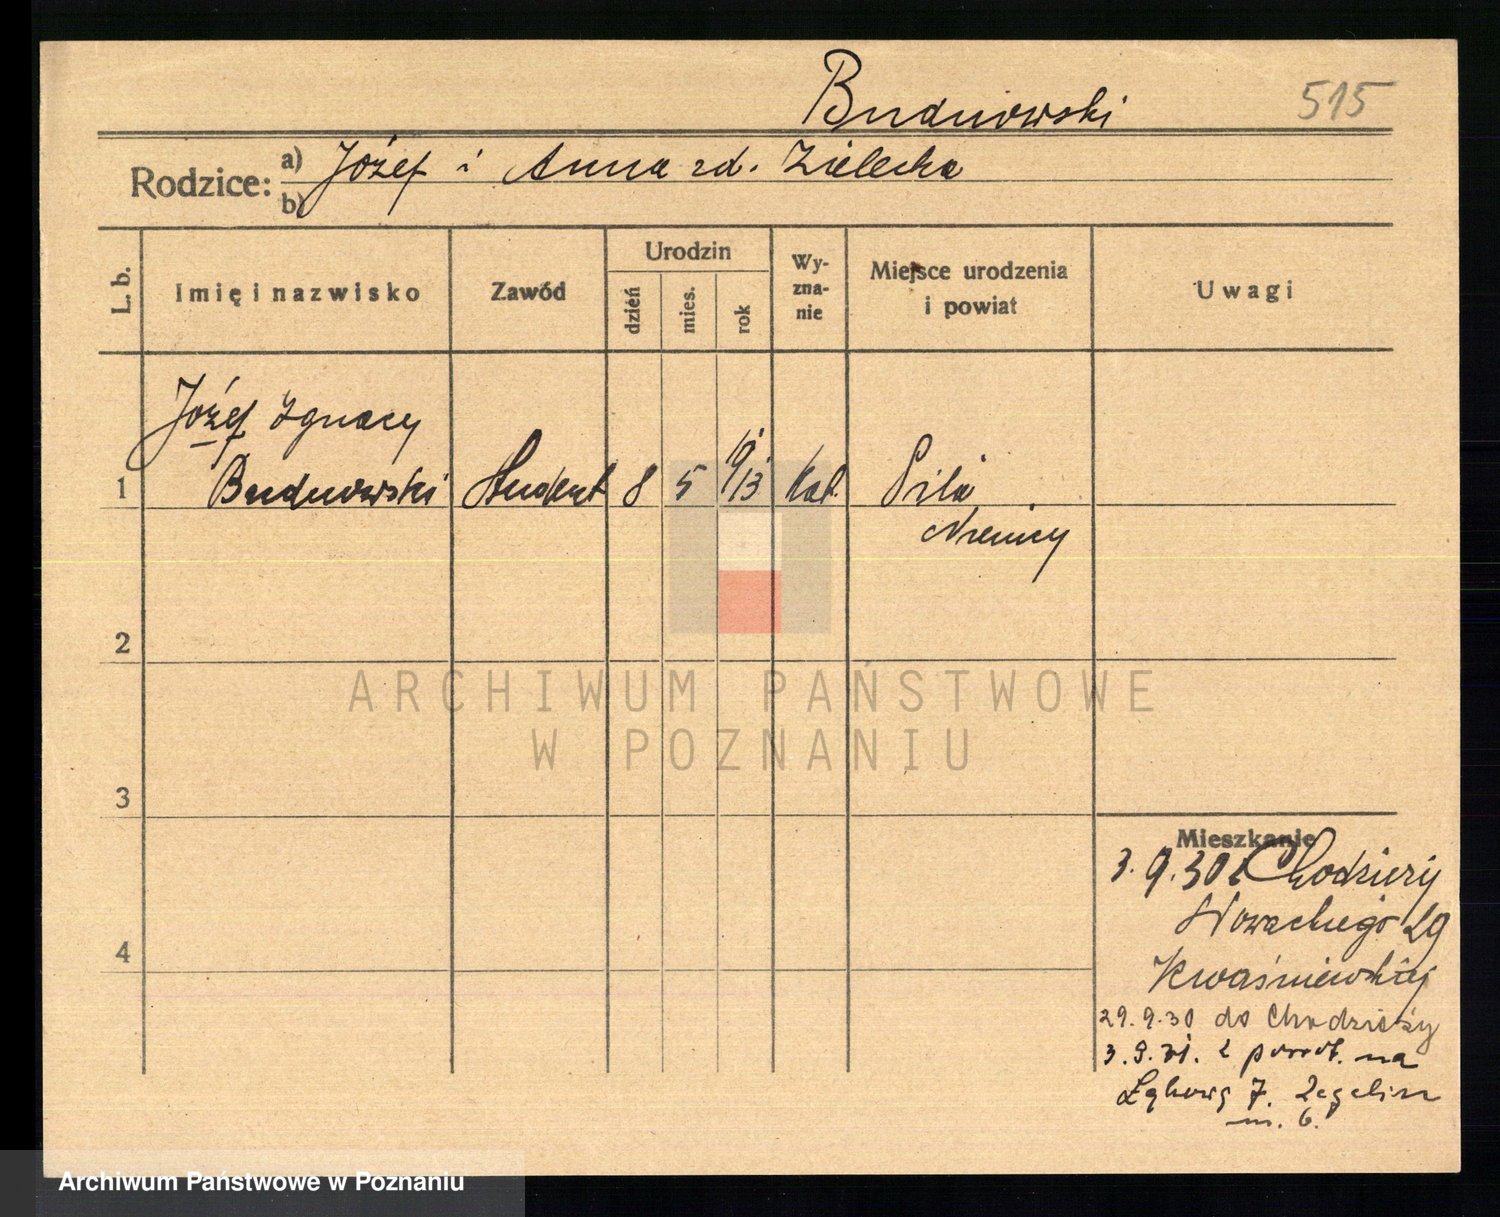 Budnowski
515
Rodzice: a) Józef i Anna zd. Zielecka
b)
L. b.
Imię i nazwisko
Zawód
Urodzin
dzień
mies.
rok
Wy-
zna-
nie
Miejsce urodzenia
i powiat
Uwagi
Józef Ignacy
1 Budnowski Student 8 5 1913 kat. Piła
Niemcy
2
3
4
Mieszkanie
3.9.30 z Chodzieży
Nowackiego 29
Kwaśniewskiej
29.9.30 do Chodzieży
3.9.31. z powrot. na
Łąkową 7.
m. 6.
ARCHIWUM PAŃSTWOWE
W POZNANIU
Archiwum Państwowe w Poznaniu